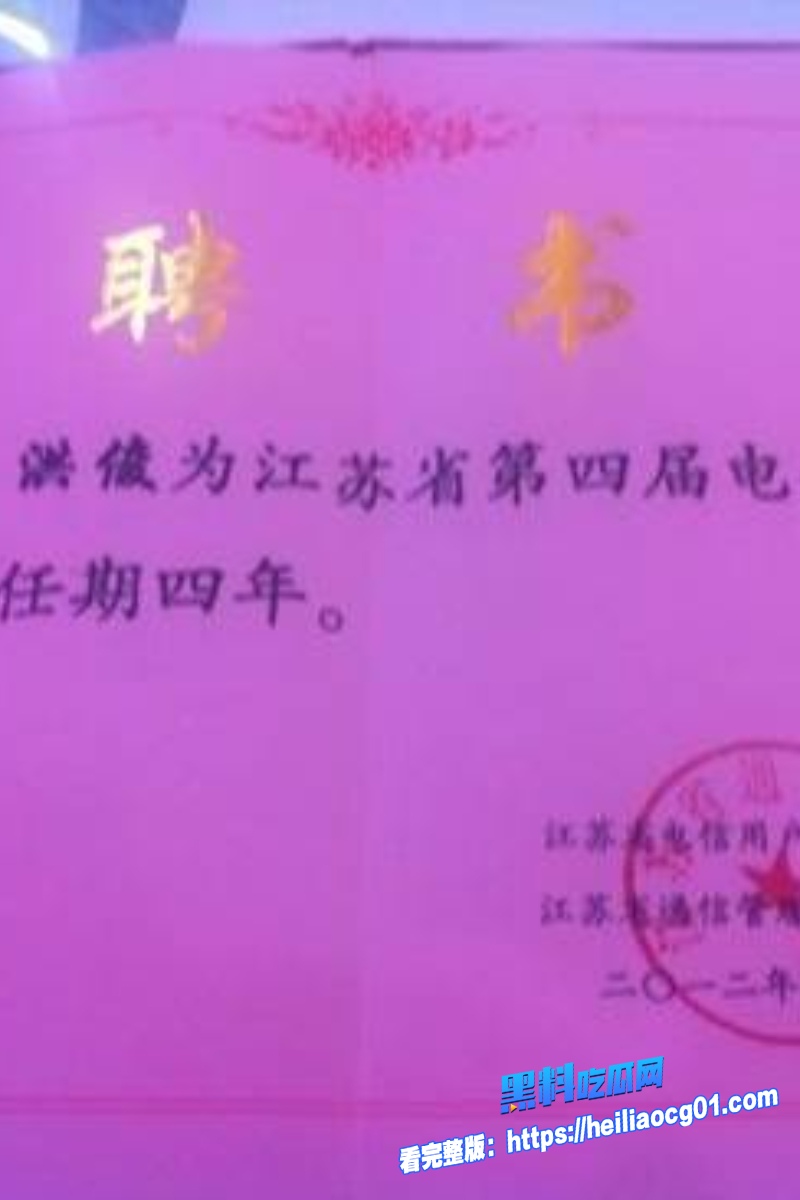 聘书
洪俊为江苏省第四届电
任期四年。
江苏省电信用户
江苏省通信管理
二〇一二年
黑料吃瓜网
看完整版：https://heiliaocg01.com